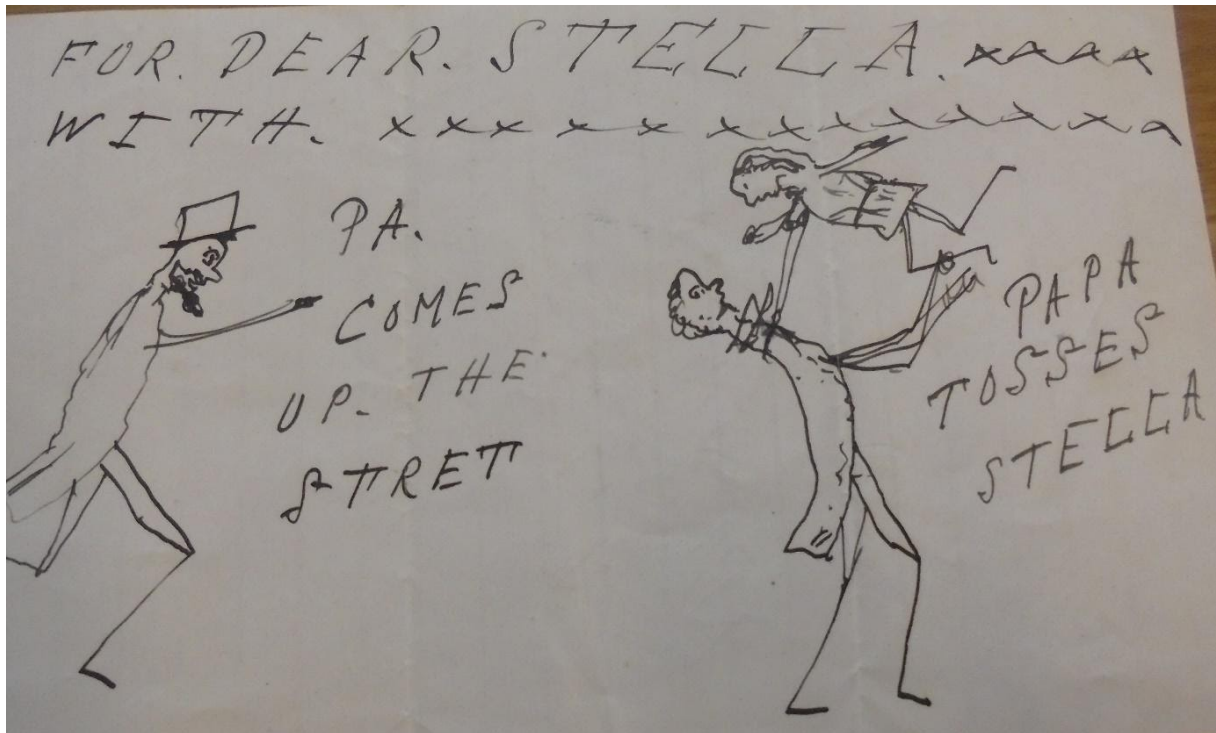 FOR. DEAR. STELLA. xxxx
WITH. xxxxxxxxxxxxxx
PA.
COMES
UP. THE
STRET
PAPA
TOSSES
STELLA